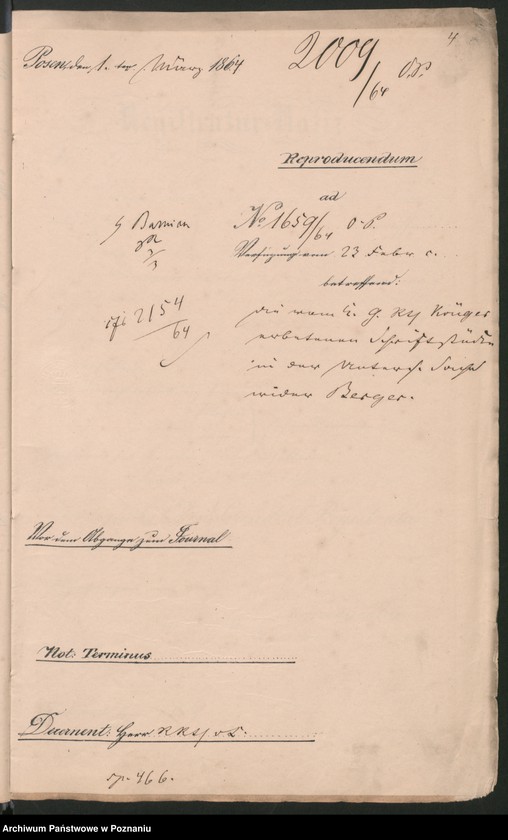 4
Posen, den 1. ten März 1864
2009/64 O.P.
Reproducendum
ad
No 1659/64 O.P.
Verfügung vom 23 Febr c.
betreffend:
die vom K. G. Rth Krüger
erbetenen Schriftstücke
in der Unters. Sache
wider Berger.
2154/64
Vor dem Abgange zum Journal
Not: Terminus
Decernent: Herr
466.
Archiwum Państwowe w Poznaniu